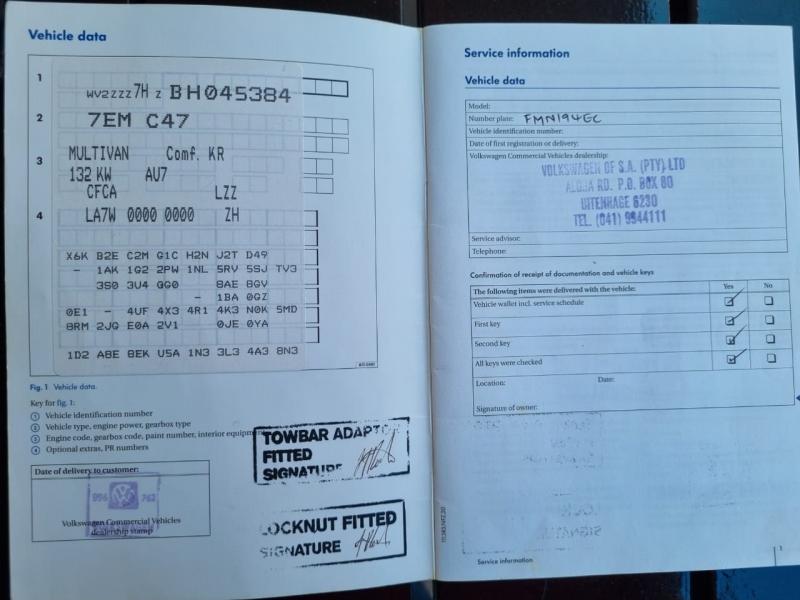 Vehicle data
1
WV2ZZZ7HZ BH045384
2
7EM C47
3
MULTIVAN Comf. KR
132 KW AU7
CFCA LZZ
4
LA7W 0000 0000 ZH
X6K B2E C2M G1C H2N J2T D49
- 1AK 1G2 2PW 1NL 5RV 5SJ TV3
3S0 3U4 GG0 8AE 8GV
- 1BA 0GZ
0E1 - 4UF 4X3 4R1 4K3 N0K 5MD
8RM 2JG E0A 2V1 0JE 0YA
1D2 A8E 8EK U5A 1N3 3L3 4A3 8N3
Fig. 1 Vehicle data.
Key for fig. 1:
1 Vehicle identification number
2 Vehicle type, engine power, gearbox type
3 Engine code, gearbox code, paint number, interior equipment
4 Optional extras, PR numbers
TOWBAR ADAPTOR
FITTED
SIGNATURE
Date of delivery to customer:
996 762
Volkswagen Commercial Vehicles
dealership stamp
LOCKNUT FITTED
SIGNATURE
Service information
Vehicle data
Model:
Number plate: FMN194EC
Vehicle identification number:
Date of first registration or delivery:
Volkswagen Commercial Vehicles dealership:
VOLKSWAGEN OF S.A. (PTY) LTD
ALGOA RD. P.O. BOX 80
UITENHAGE 6230
TEL. (041) 9944111
Service advisor:
Telephone:
Confirmation of receipt of documentation and vehicle keys
The following items were delivered with the vehicle: Yes No
Vehicle wallet incl. service schedule
First key
Second key
All keys were checked
Location: Date:
Signature of owner:
Service information
1